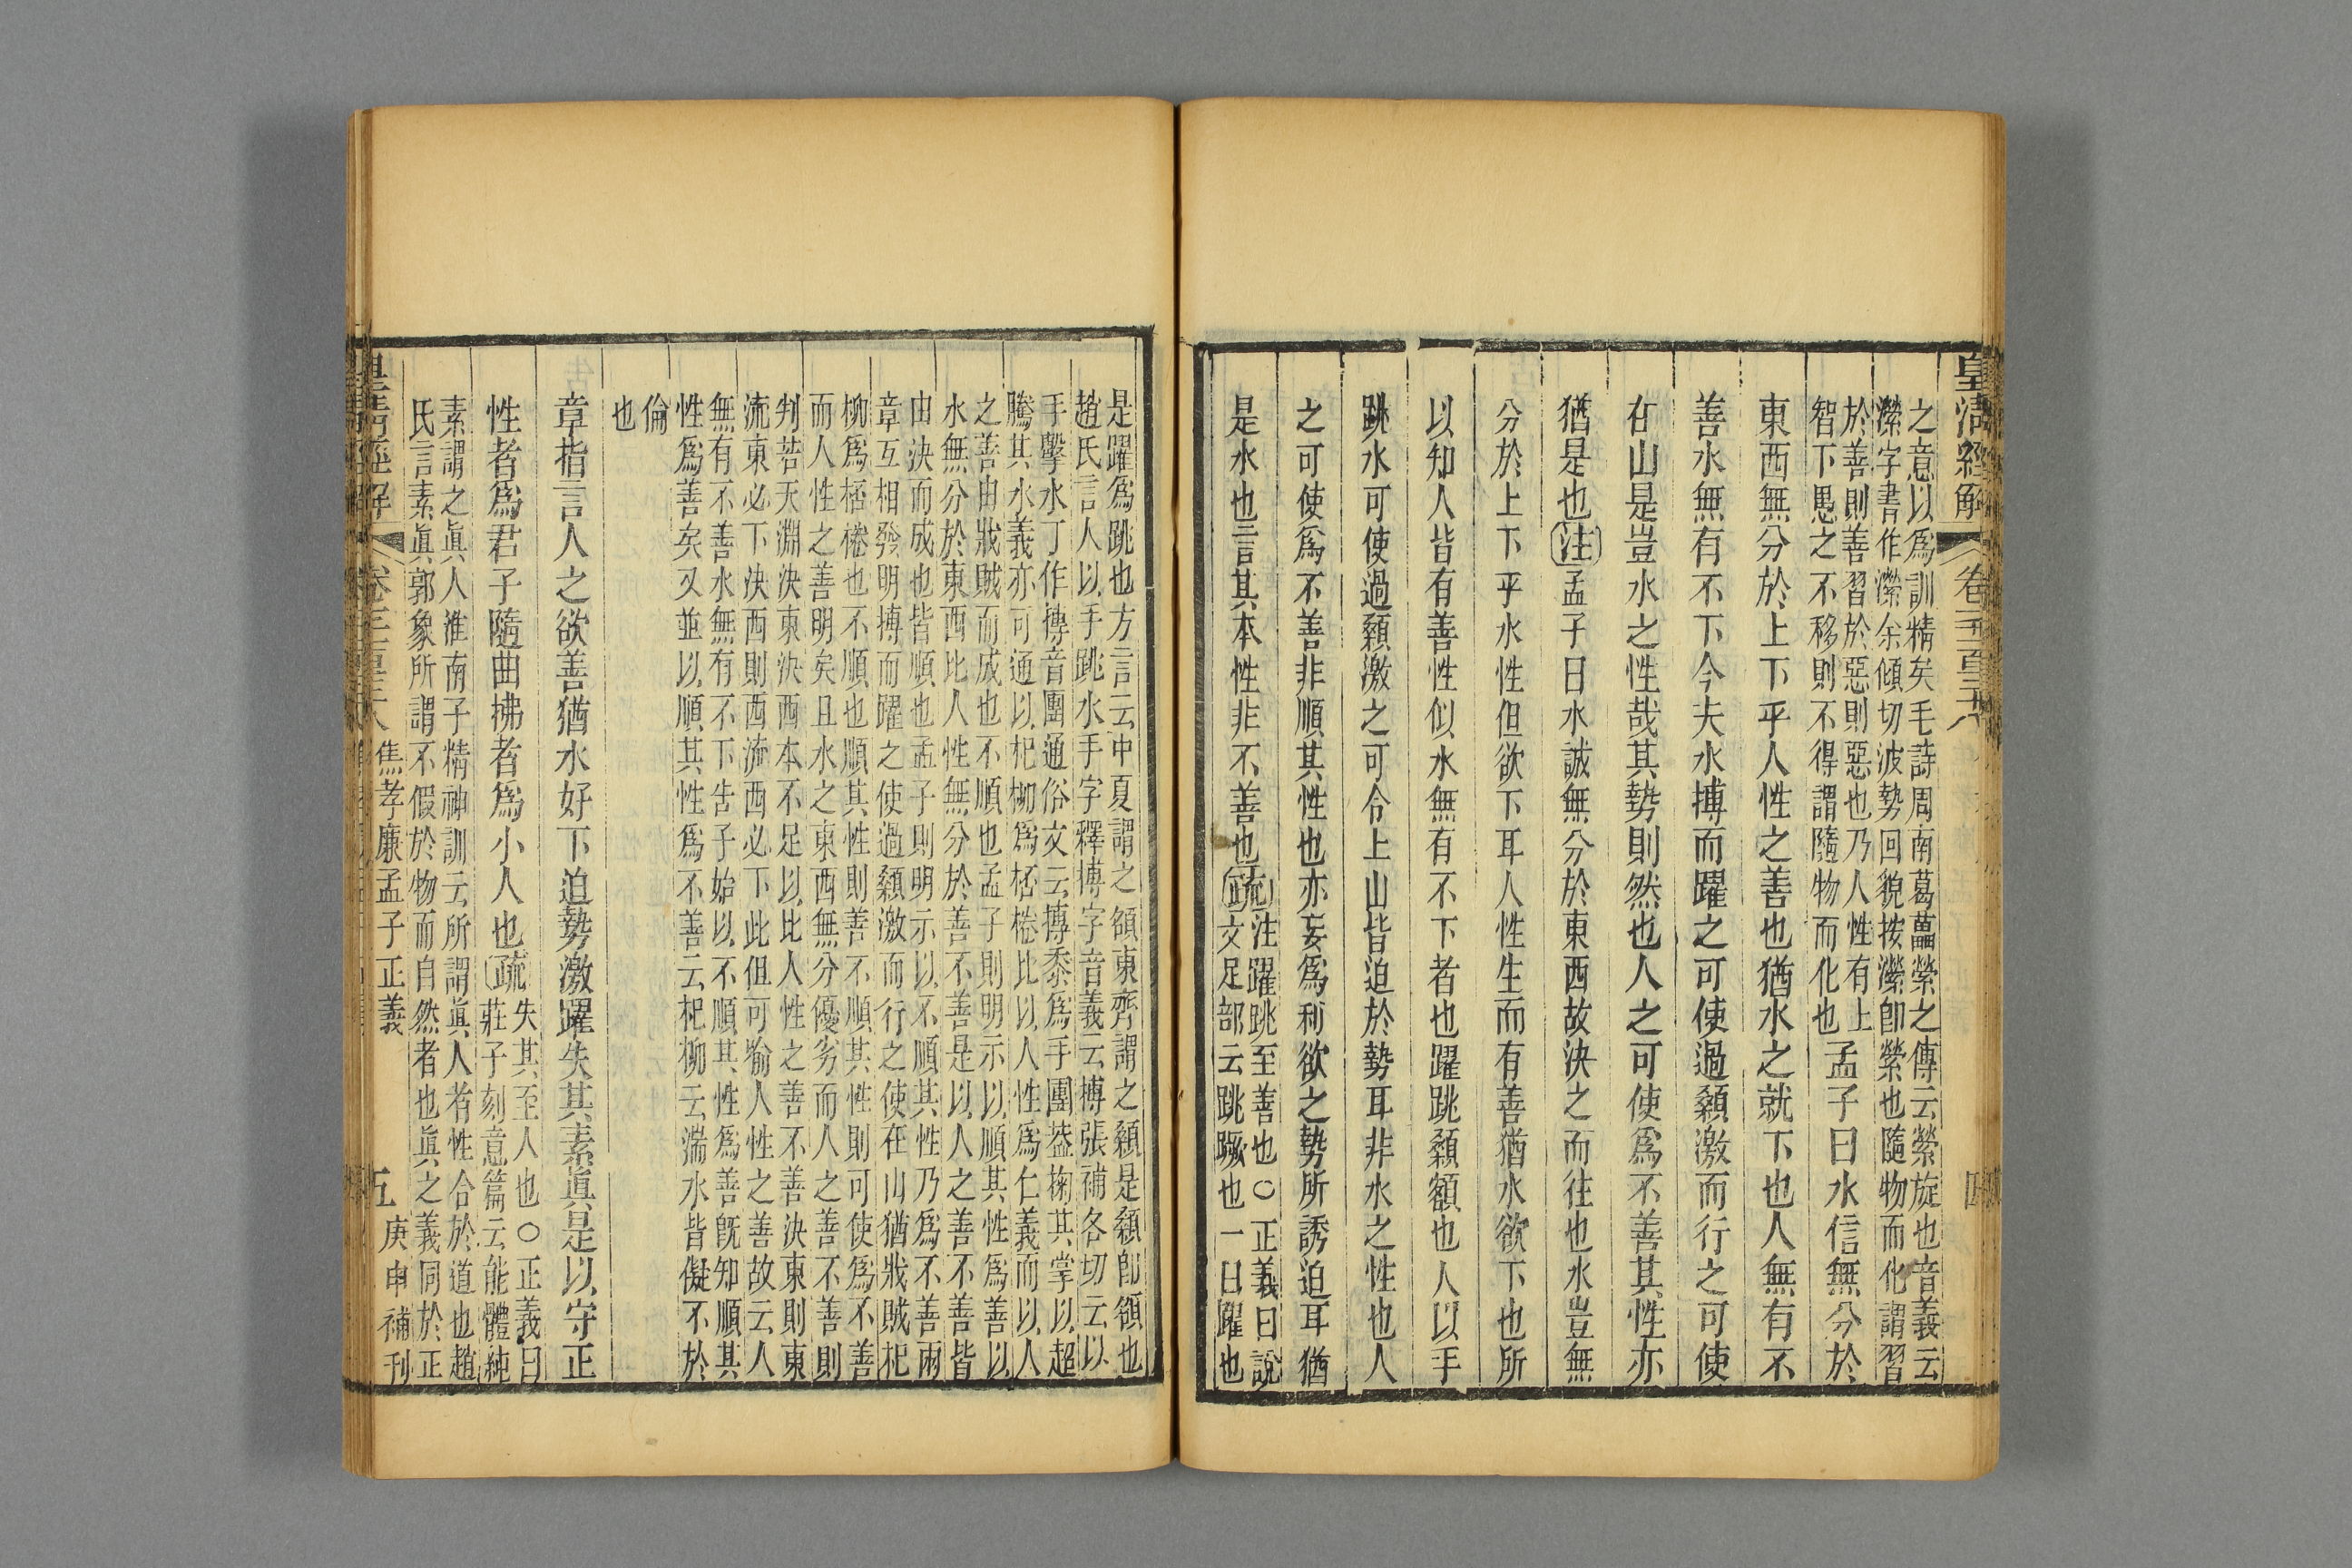 皇清經解 卷一千一百三十八
之意以爲訓精矣毛詩周南葛藟縈之傳云縈旋也音義云
濴字書作濴余傾切波勢回貌按濴卽縈也隨物而化謂習
於善則善習於惡則惡也乃人性有上
智下愚之不移則不得謂隨物而化也
孟子曰水信無分於
東西無分於上下乎人性之善也猶水之就下也人無有不
善水無有不下今夫水搏而躍之可使過顙激而行之可使
在山是豈水之性哉其勢則然也人之可使爲不善其性亦
猶是也注孟子曰水誠無分於東西故決之而往也水豈無
分於上下乎水性但欲下耳人性生而有善猶水欲下也所
以知人皆有善性似水無有不下者也躍跳顙額也人以手
跳水可使過顙激之可令上山皆迫於勢耳非水之性也人
之可使爲不善非順其性也亦妄爲利欲之勢所誘迫耳猶
是水也言其本性非不善也疏
注躍跳至善也○正義曰說
文足部云跳蹶也一曰躍也
是躍爲跳也方言云中夏謂之額東齊謂之顙是顙卽額也
趙氏言人以手跳水手字釋搏字音義云搏張補各切云以
手擊水丁作摶音團通俗文云摶黍爲手團葢掬其掌以超
騰其水義亦可通以杞柳爲桮棬比以人性爲仁義而以人
之善由戕賊而成也不順也孟子則明示以順其性爲善以
水無分於東西比人性無分於善不善是以人之善不善皆
由決而成也皆順也孟子則明示以不順其性乃爲不善兩
章互相發明搏而躍之使過顙激而行之使在山猶戕賊杞
柳爲桮棬也不順也順其性則善不順其性則可使爲不善
而人性之善明矣且水之東西無分優劣而人之善不善則
判若天淵決東決西本不足以比人性之善不善決東則東
流東必下決西則西流西必下此但可喻人性之善故云人
無有不善水無有不下告子始以不順其性爲善旣知順其
性爲善矣又並以順其性爲不善云杞柳云湍水皆儗不於
倫
也
章指言人之欲善猶水好下迫勢激躍失其素眞是以守正
性者爲君子隨曲拂者爲小人也疏
失其至人也○正義曰
莊子刻意篇云能體純
素謂之眞人淮南子精神訓云所謂眞人者性合於道也趙
氏言素眞郭象所謂不假於物而自然者也眞之義同於正
焦孝廉孟子正義
五 庚申補刊